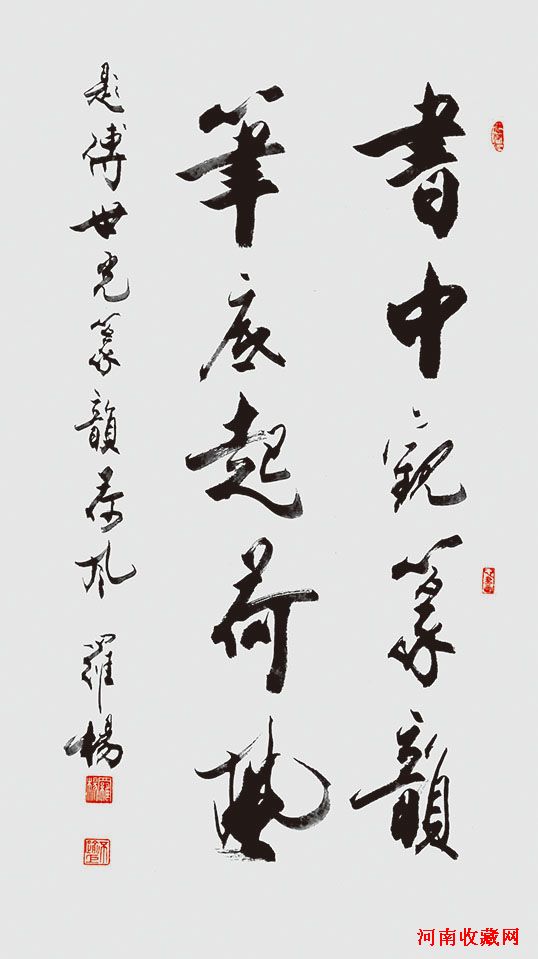 書中觀篆韻
筆底起荷風
題傅世光篆韻荷风
羅楊
河南收藏网